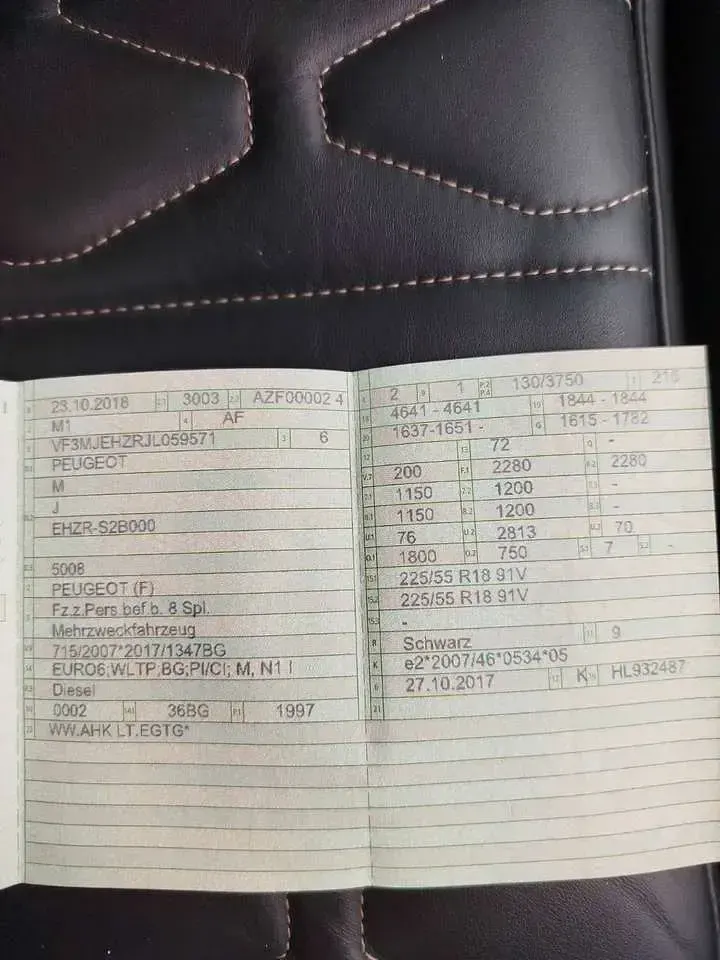 23.10.2018 2.1 3003 2.2 AZF00002 4
M1 4 AF
VF3MJEHZRJL059571 3 6
PEUGEOT
M
J
EHZR-S2B000
5008
PEUGEOT (F)
Fz.z.Pers.bef.b. 8 Spl.
Mehrzweckfahrzeug
715/2007*2017/1347BG
EURO6;WLTP;BG;PI/CI; M, N1 I
Diesel
0002 36BG P.1 1997
WW.AHK LT.EGTG*
2 9 1 P.2 P.4 130/3750 T
4641 - 4641 19 1844 - 1844
1637-1651 - G 1615 - 1782
12 13 72 Q -
V.7 200 F.1 2280 F.2 2280
7.1 1150 7.2 1200 7.3 -
8.1 1150 8.2 1200 8.3 -
U.1 76 U.2 2813 U.3 70
O.1 1800 O.2 750 S.1 7 S.2 -
15.1 225/55 R18 91V
15.2 225/55 R18 91V
15.3 -
R Schwarz 11 9
K e2*2007/46*0534*05
6 27.10.2017 17 K 16 HL932487
21